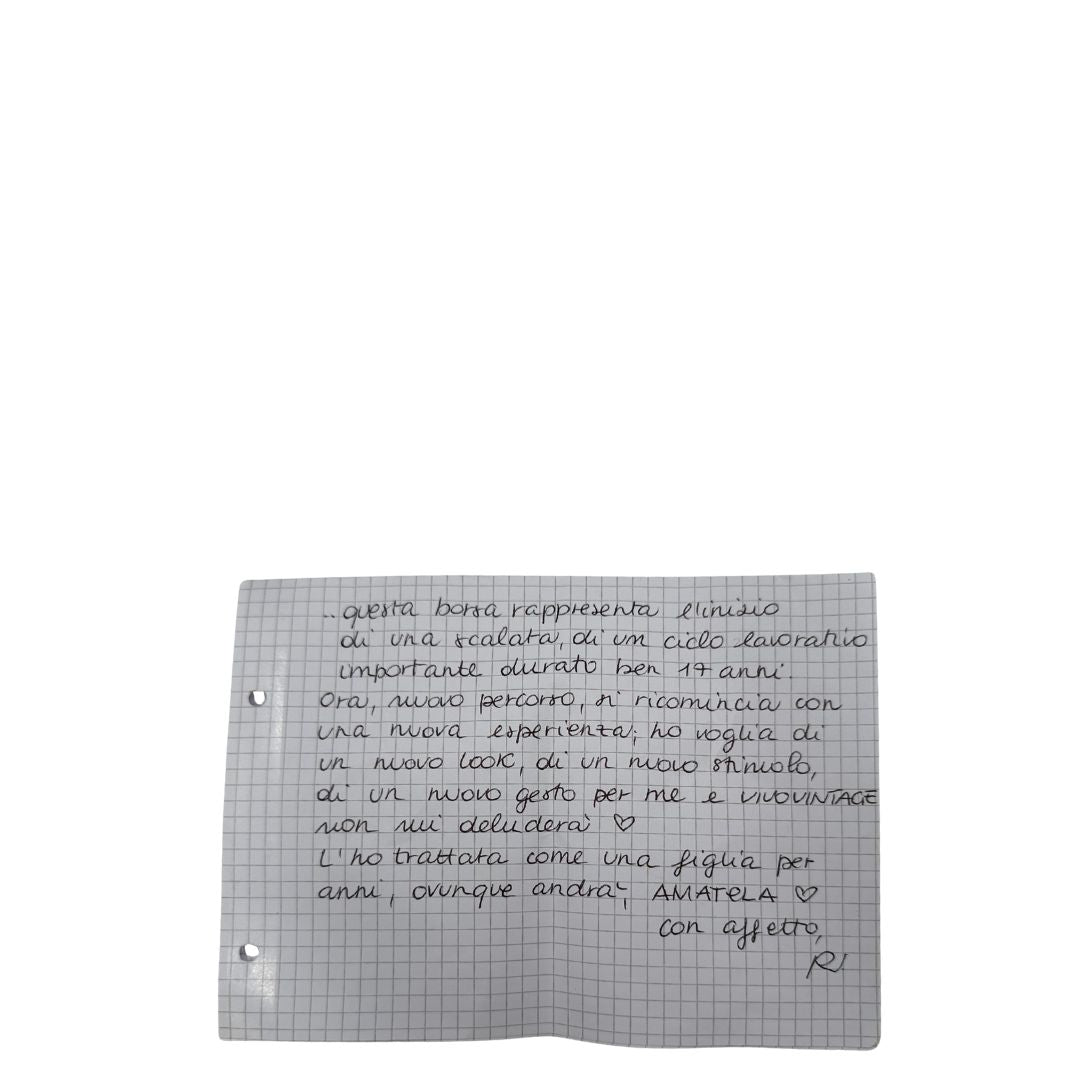 ..questa borsa rappresenta l'inizio
di una scalata, di un ciclo lavorativo
importante durato ben 17 anni.
Ora, nuovo percorso, si ricomincia con
una nuova esperienza; ho voglia di
un nuovo look, di un nuovo stimolo,
di un nuovo gesto per me e VIVOVINTAGE
non mi deluderà ♡
L'ho trattata come una figlia per
anni, ovunque andrà, AMATELA ♡
con affetto,
R.